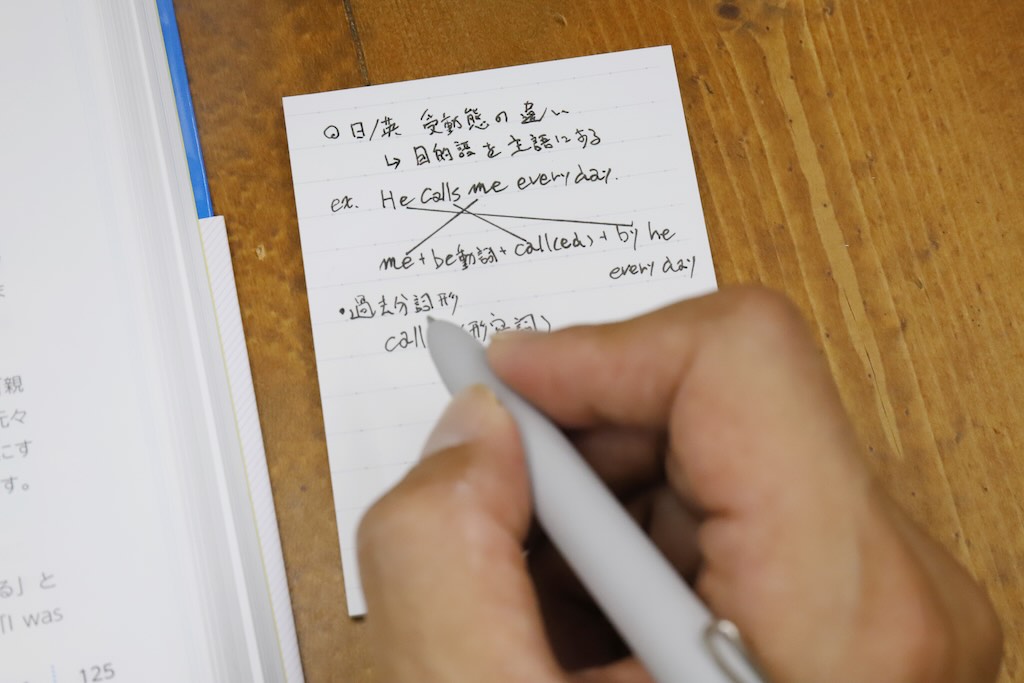 親
元々
にす
す。
る」と
「I was
125
○日/英 受動態の違い
↳ 目的語を主語にする
ex. He calls me every day.
me + be動詞 + call(ed) + by he
every day
・過去分詞形
call (形容詞)